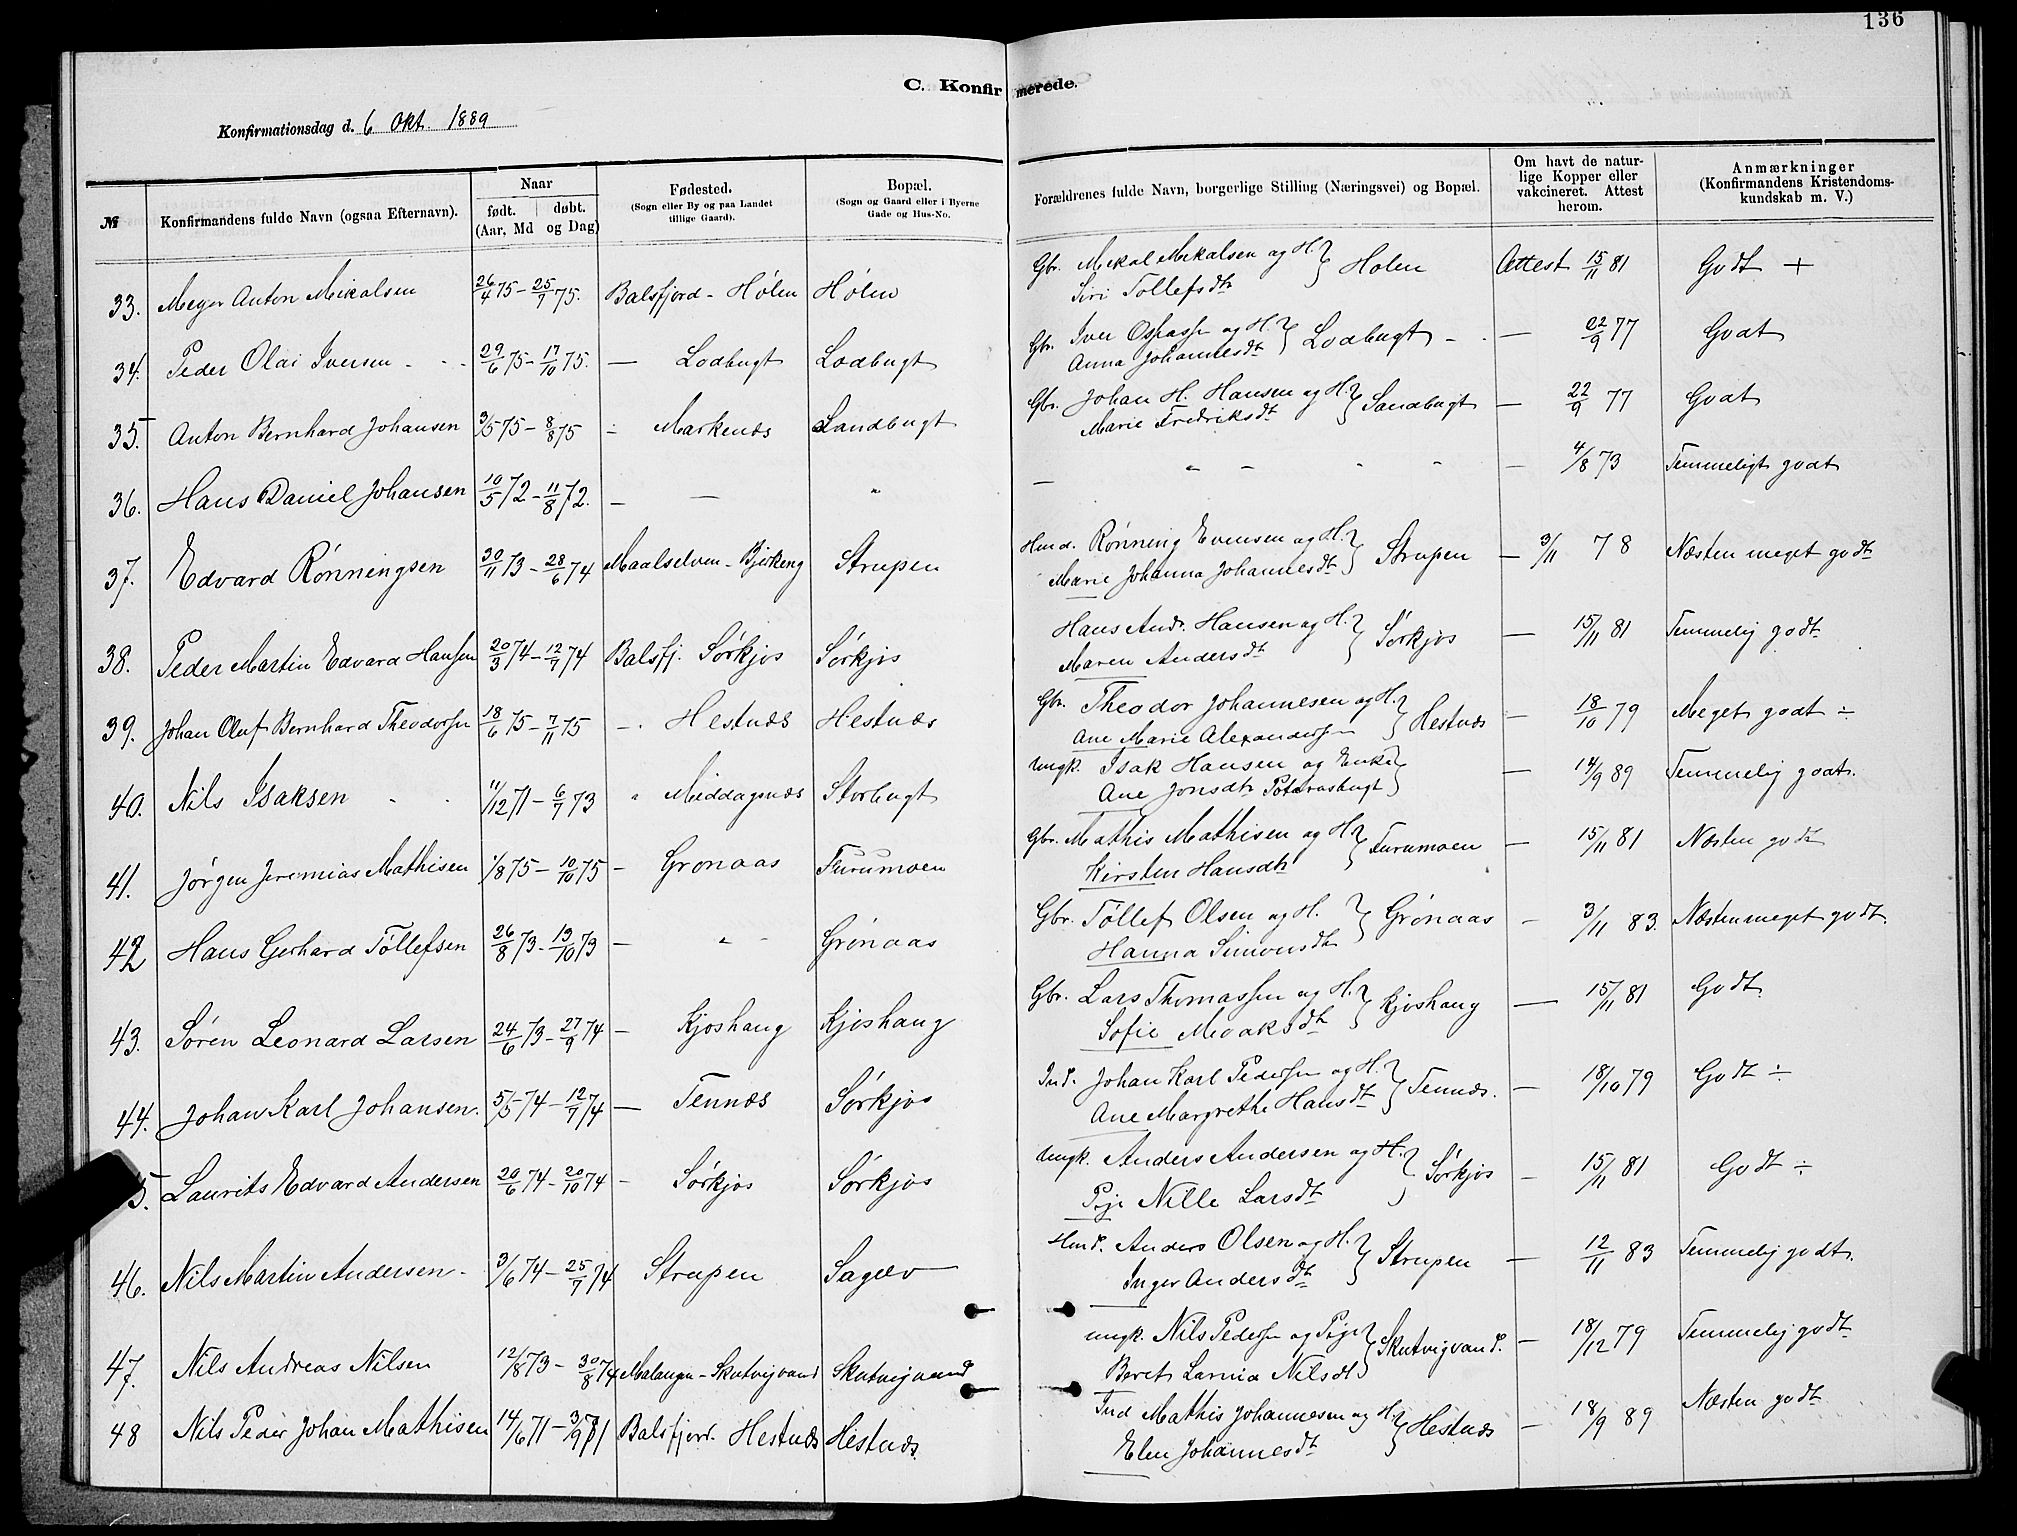 136
C. Konfirmerede.
Konfirmationsdag d. 6 Okt. 1889
№ Konfirmandens fulde Navn (ogsaa Efternavn). Naar født. døbt. (Aar, Md og Dag) Fødested. (Sogn eller By og paa Landet tillige Gaard). Bopæl. (Sogn og Gaard eller i Byerne Gade og Hus-No. Forældrenes fulde Navn, borgerlige Stilling (Næringsvei) og Bopæl. Om havt de naturlige Kopper eller vakcineret. Attest herom. Anmærkninger (Konfirmandens Kristendomskundskab m. V.)
33. Meyer Anton Mikalsen 26/4 75 - 25/7 75. Balsfjord - Hólen Hólen Gbr. Mikal Mikalsen og H. } Holen Attest 15/11 81 Godt +
Siri Tollefsdtr
34. Peder Olai Iversen 29/6 75 - 17/10 75. — Lodbugt Lodbugt Gbr. Iver Ospassen og H. } Lodbugt — 22/9 77 Godt
Anna Johannesdt
35. Anton Bernhard Johansen 3/5 75 - 8/8 75 - Markenæs Sandbugt Gbr. Johan H. Hansen og H. } Sandbugt — 22/9 77 Godt
Marie Fredriksdt
36. Hans Daniel Johansen 10/5 72 - 11/8 72. — — " — " — " " — 4/8 73 Temmeligt godt
37. Edvard Rónningsen 30/11 73 - 28/6 74 Maalselven - Bjerkeng Strupen Hmd. Rónning Evensen og H. } Strupen — 3/11 78 Næsten meget godt
Marie Johanna Johannesdt
38. Peder Martin Edvard Hansen 20/3 74 - 12/7 74 Balsfj. Sórkjos Sórkjos Hans Andr. Hansen og H. } Sórkjos — 15/11 81 Temmelig godt
Maren Andersdt
39. Johan Oluf Bernhard Theodorsen 18/6 75 - 7/11 75 -. Hestnæs Hestnæs Gbr. Theodor Johannesen og H. } Hestnæs — 18/10 79 Meget godt ÷
Ane Marie Alexandersen
40. Nils Isaksen 11/12 71 - 6/7 73 " Middagsnæs Storbugt Ungk. Isak Hansen og Enke } — 14/9 89 Temmelig godt.
Ane Jonsdtr
41. Jórgen Jeremias Mathisen 1/8 75 - 10/10 75 — Gronaas Furumoen Gbr. Mathis Mathisen og H. } Furumoen — 15/11 81 Næsten godt
Kirsten Hansdtr
42 Hans Gerhard Tóllefsen 26/8 73 - 19/10 73 — " - Grónaas Gbr. Tóllef Olsen og H. } Grónaas — 3/11 83. Næsten meget godt.
Hanna Simonsdt
43. Sóren Leonard Larsen 24/6 73 - 27/9 74 — Kjoshaug Kjoshaug Gbr. Lars Thomassen og H. } Kjoshaug — 15/11 81 Godt.
Sofie Meoaksdt
44. Johan Karl Johansen. 5/5 74 - 12/7 74 — Tennæs Sórkjos Ind. Johan Karl Pedersen og H. } Tennæs. — 18/10 79 Godt ÷
Ane Margrethe Hansdt
5. Laurits Edvard Andersen 20/6 74 - 20/10 74 - Sórkjos Sórkjos Ungk. Anders Andersen og H. } Sórkjos — 15/11 81 Godt ÷
Pige Nille Larsdt
46. Nils Martin Andersen - 3/6 74 - 25/7 74 Strupen Sagelv Hmd. Anders Olsen og H. } Strupen — 12/11 83 Temmelig godt.
Inger Andersdt
47. Nils Andreas Nilsen 12/8 73 - 30/8 74 Malangen - Skutvigvand Skutvigvand Ungk. Nils Pedersen og Pige } Skutvigvand. — 18/12 79 Temmelig godt
Beret Larina Nilsdt
48 Nils Peder Johan Mathisen 14/6 71 - 3/9 71 Balsfjord. Hestnæs Hestnæs. Ind Mathis Johannesen og H. } Hestnæs — 18/9 89 Næsten godt
Elen Johannesdt